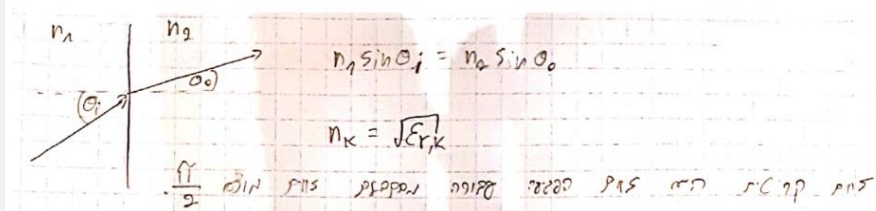 n₁ n₂
n₁ sin θᵢ = n₂ sin θₒ
θₒ
θᵢ
nₖ = √εᵣ,ₖ
זווית קריטית היא זווית הפגיעה עבורה מתקבלת זווית מוצא π/2